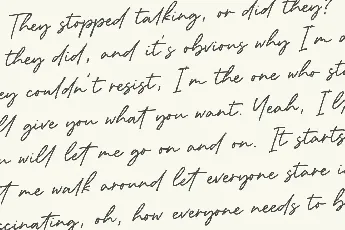 They stopped talking, or did they?
they did, and it's obvious why I'm
couldn't resist, I'm the one who
give you what you want. Yeah,
will let me go on and on. It starts
me walk around let everyone stare
oh, how everyone needs to